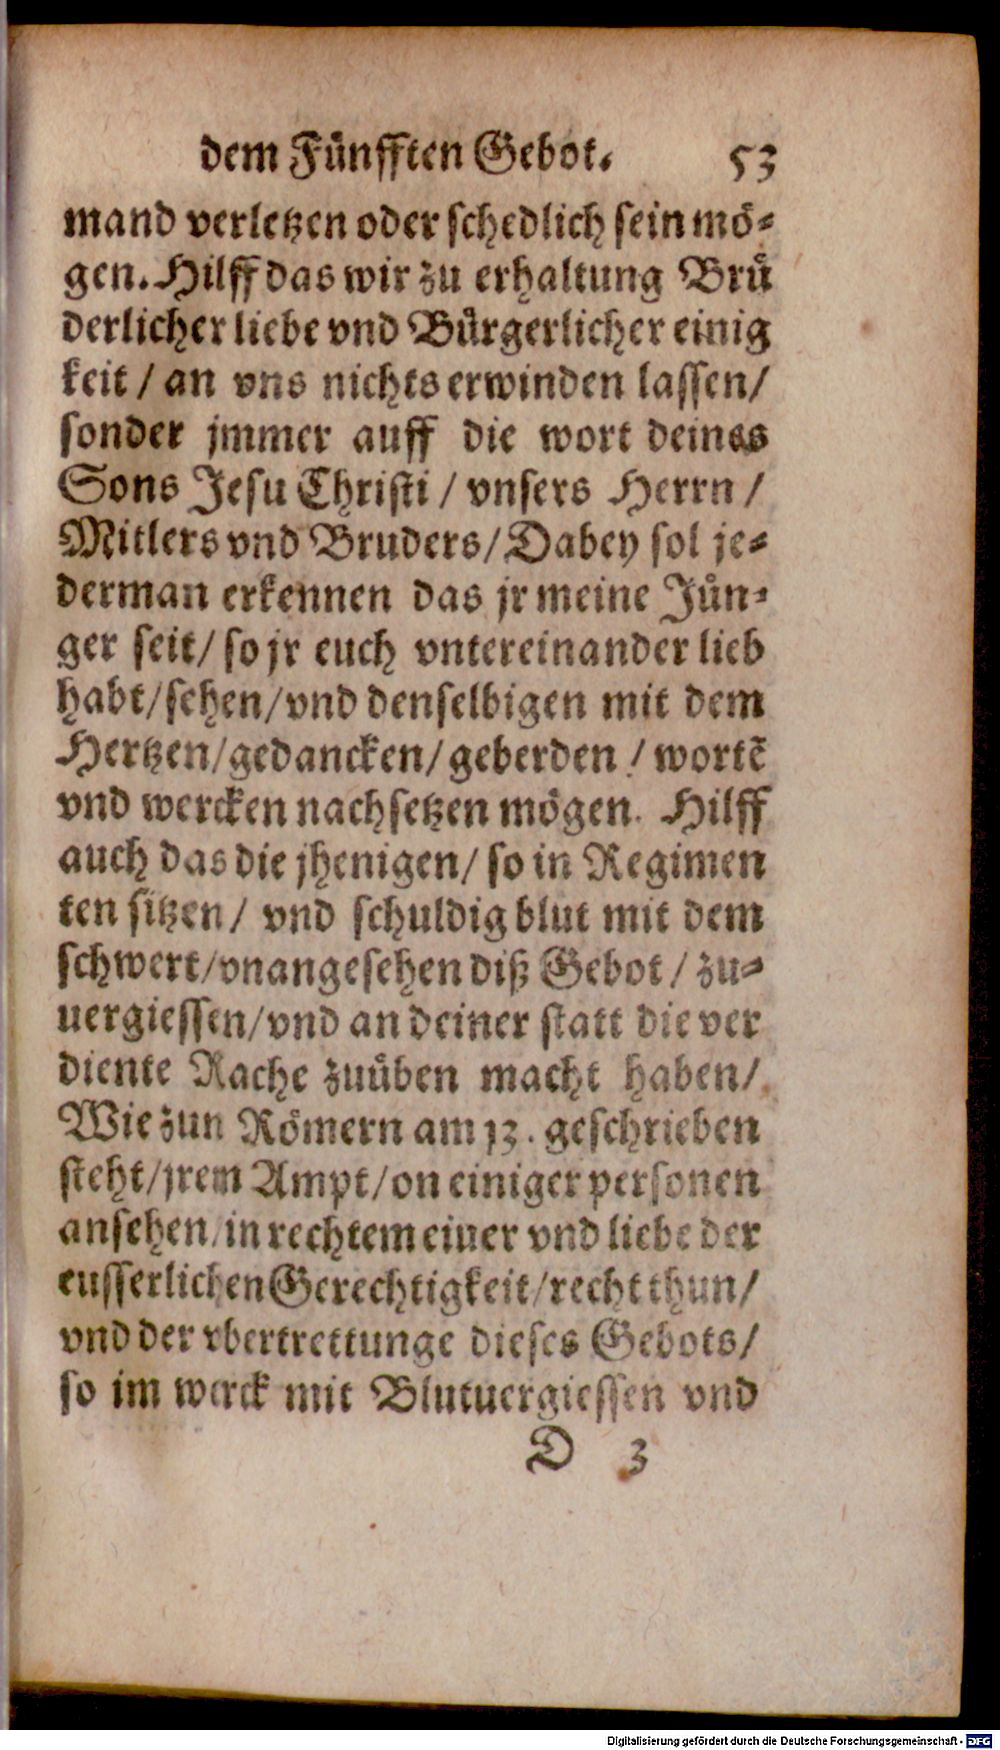 dem Fünfften Gebot. 53
mand verletzen oder schedlich sein mö-
gen. Hilff das wir zu erhaltung Brü
derlicher liebe vnd Bürgerlicher einig
keit / an vns nichts erwinden lassen/
sonder jmmer auff die wort deines
Sons Jesu Christi / vnsers Herrn /
Mitlers vnd Bruders/Dabey sol je-
derman erkennen das jr meine Jün-
ger seit/ so jr euch vntereinander lieb
habt/sehen/vnd denselbigen mit dem
Hertzen/gedancken/geberden / wortē
vnd wercken nachsetzen mögen. Hilff
auch das die jhenigen/ so in Regimen
ten sitzen/ vnd schuldig blut mit dem
schwert/vnangesehen diß Gebot / zu-
uergiessen/vnd an deiner statt die ver
diente Rache zuüben macht haben/
Wie zun Römern am 13. geschrieben
steht/jrem Ampt/on einiger personen
ansehen/in rechtem eiuer vnd liebe der
eusserlichen Gerechtigkeit/recht thun/
vnd der vbertrettunge dieses Gebots/
so im werck mit Blutuergiessen vnd
D 3
Digitalisierung gefördert durch die Deutsche Forschungsgemeinschaft - DFG